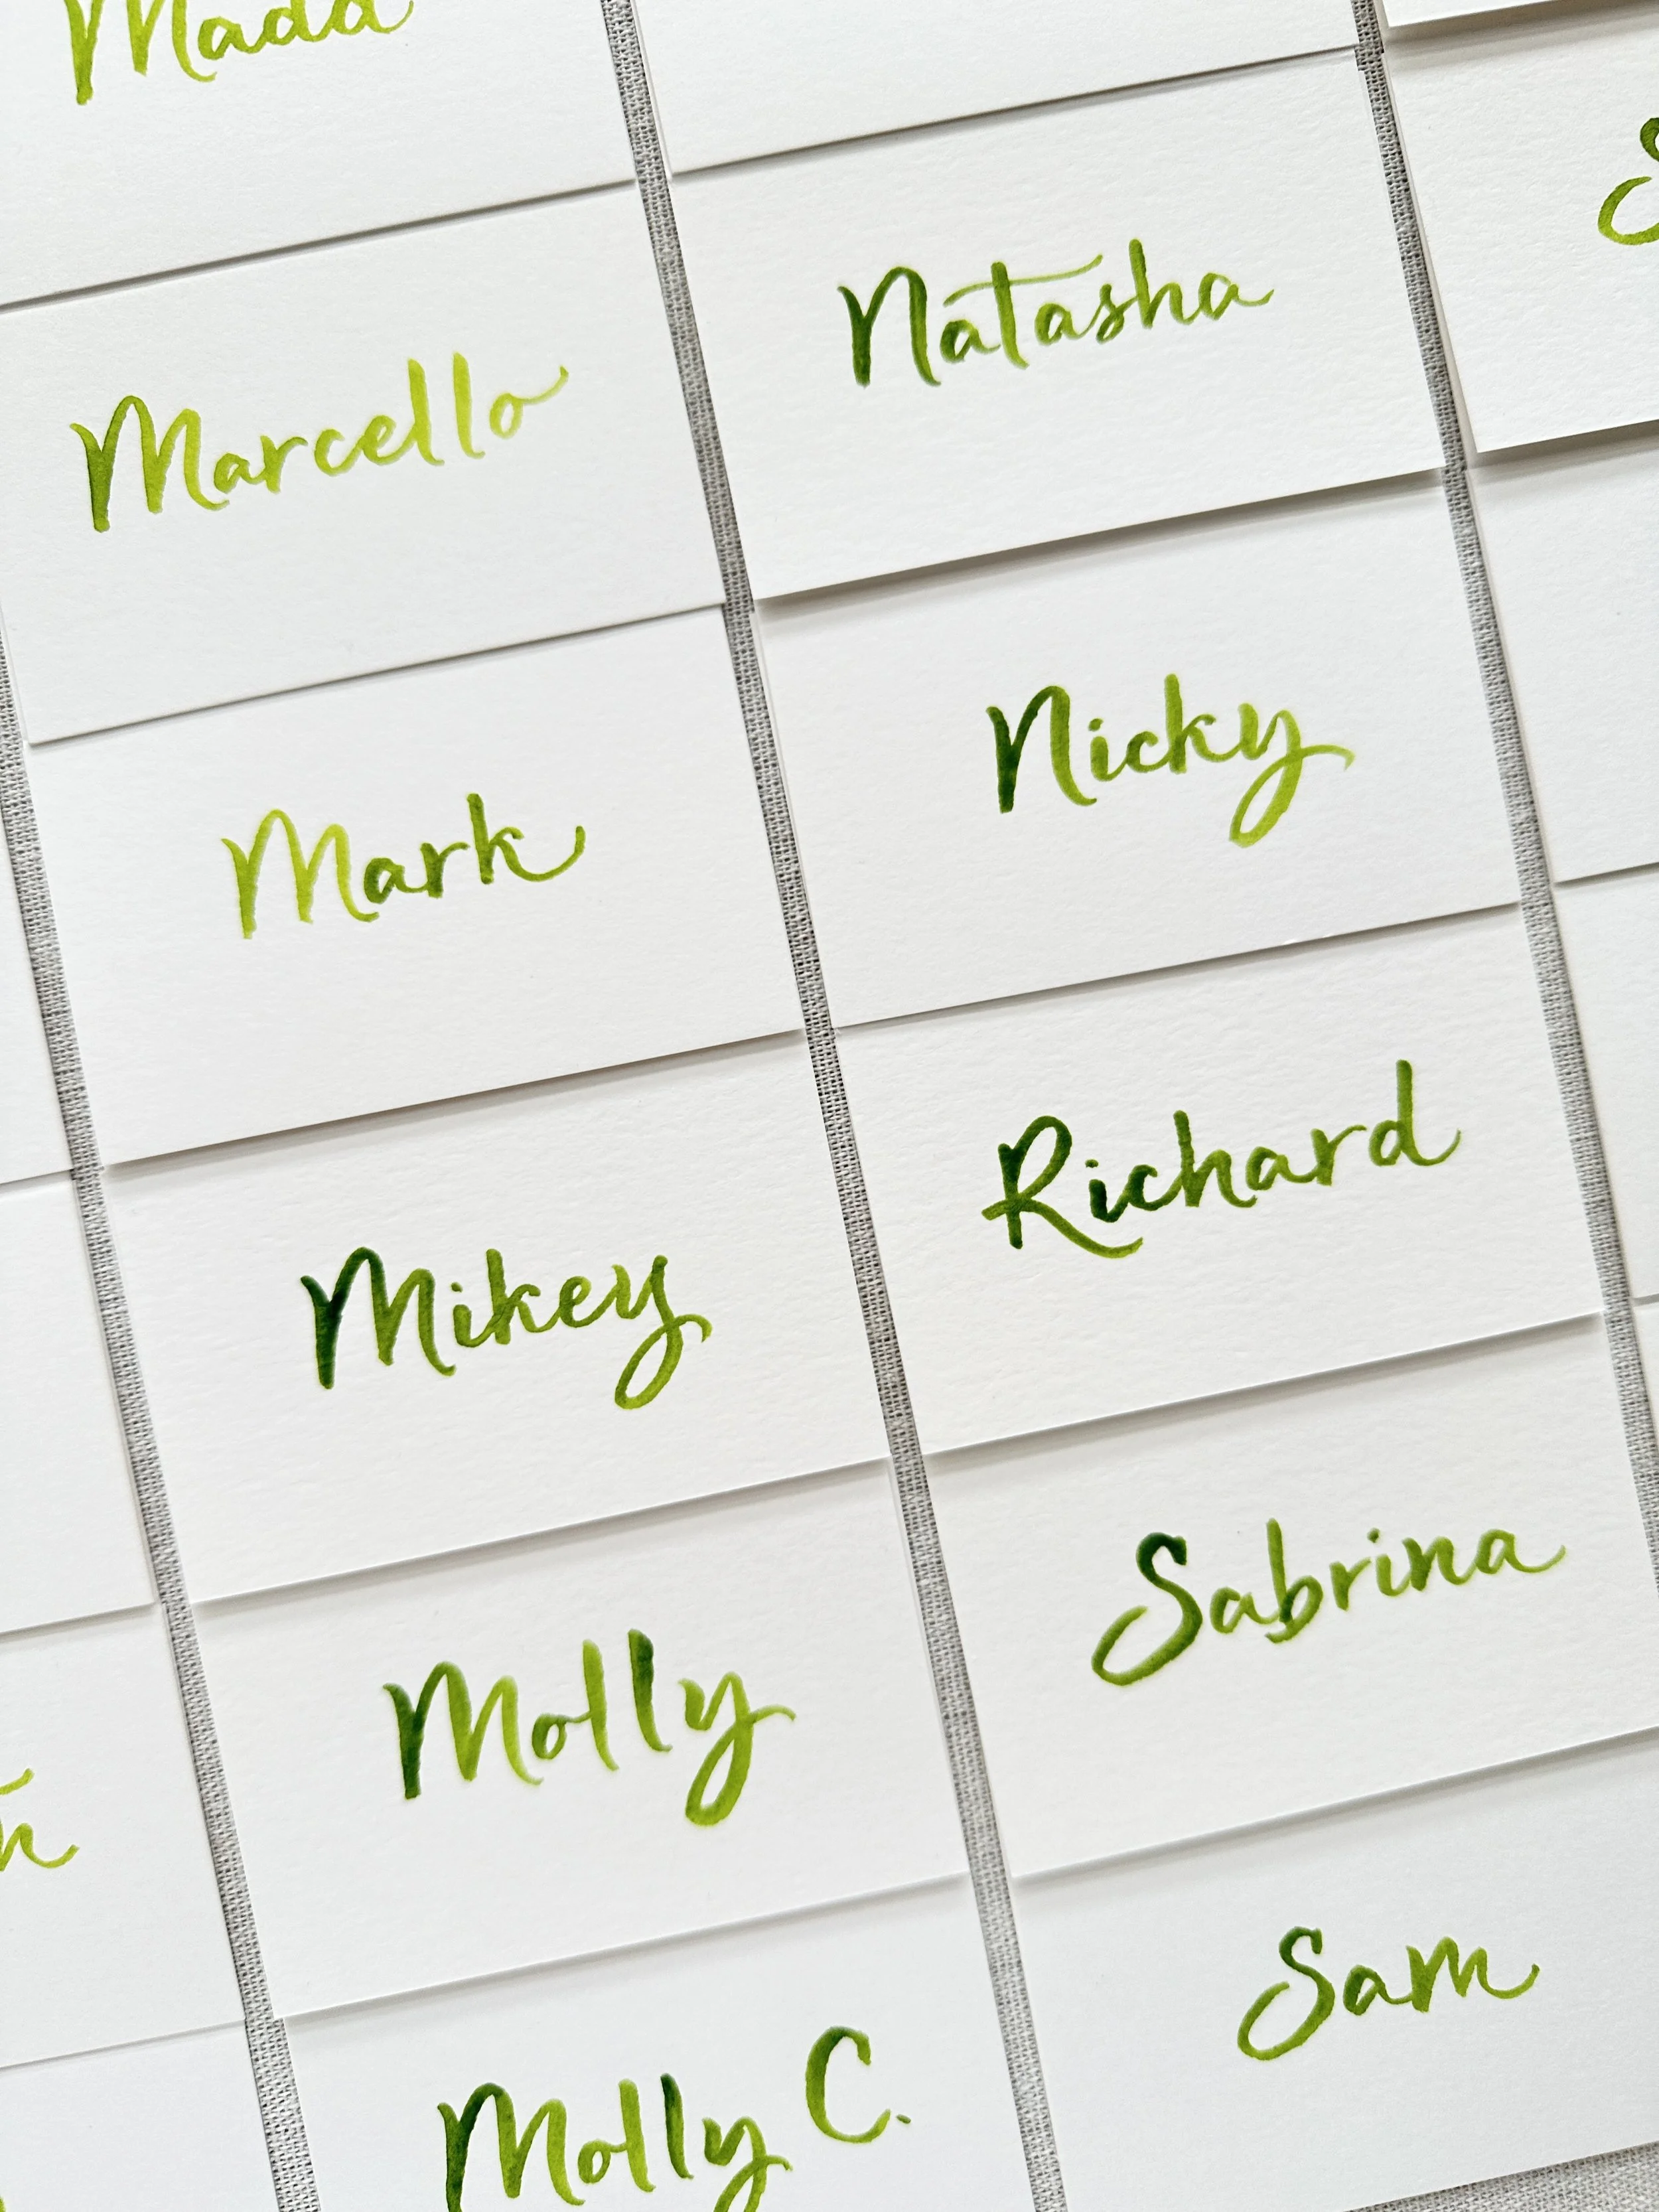 Mada
Marcello
Mark
Mikey
Molly
Molly C.
Natasha
Nicky
Richard
Sabrina
Sam